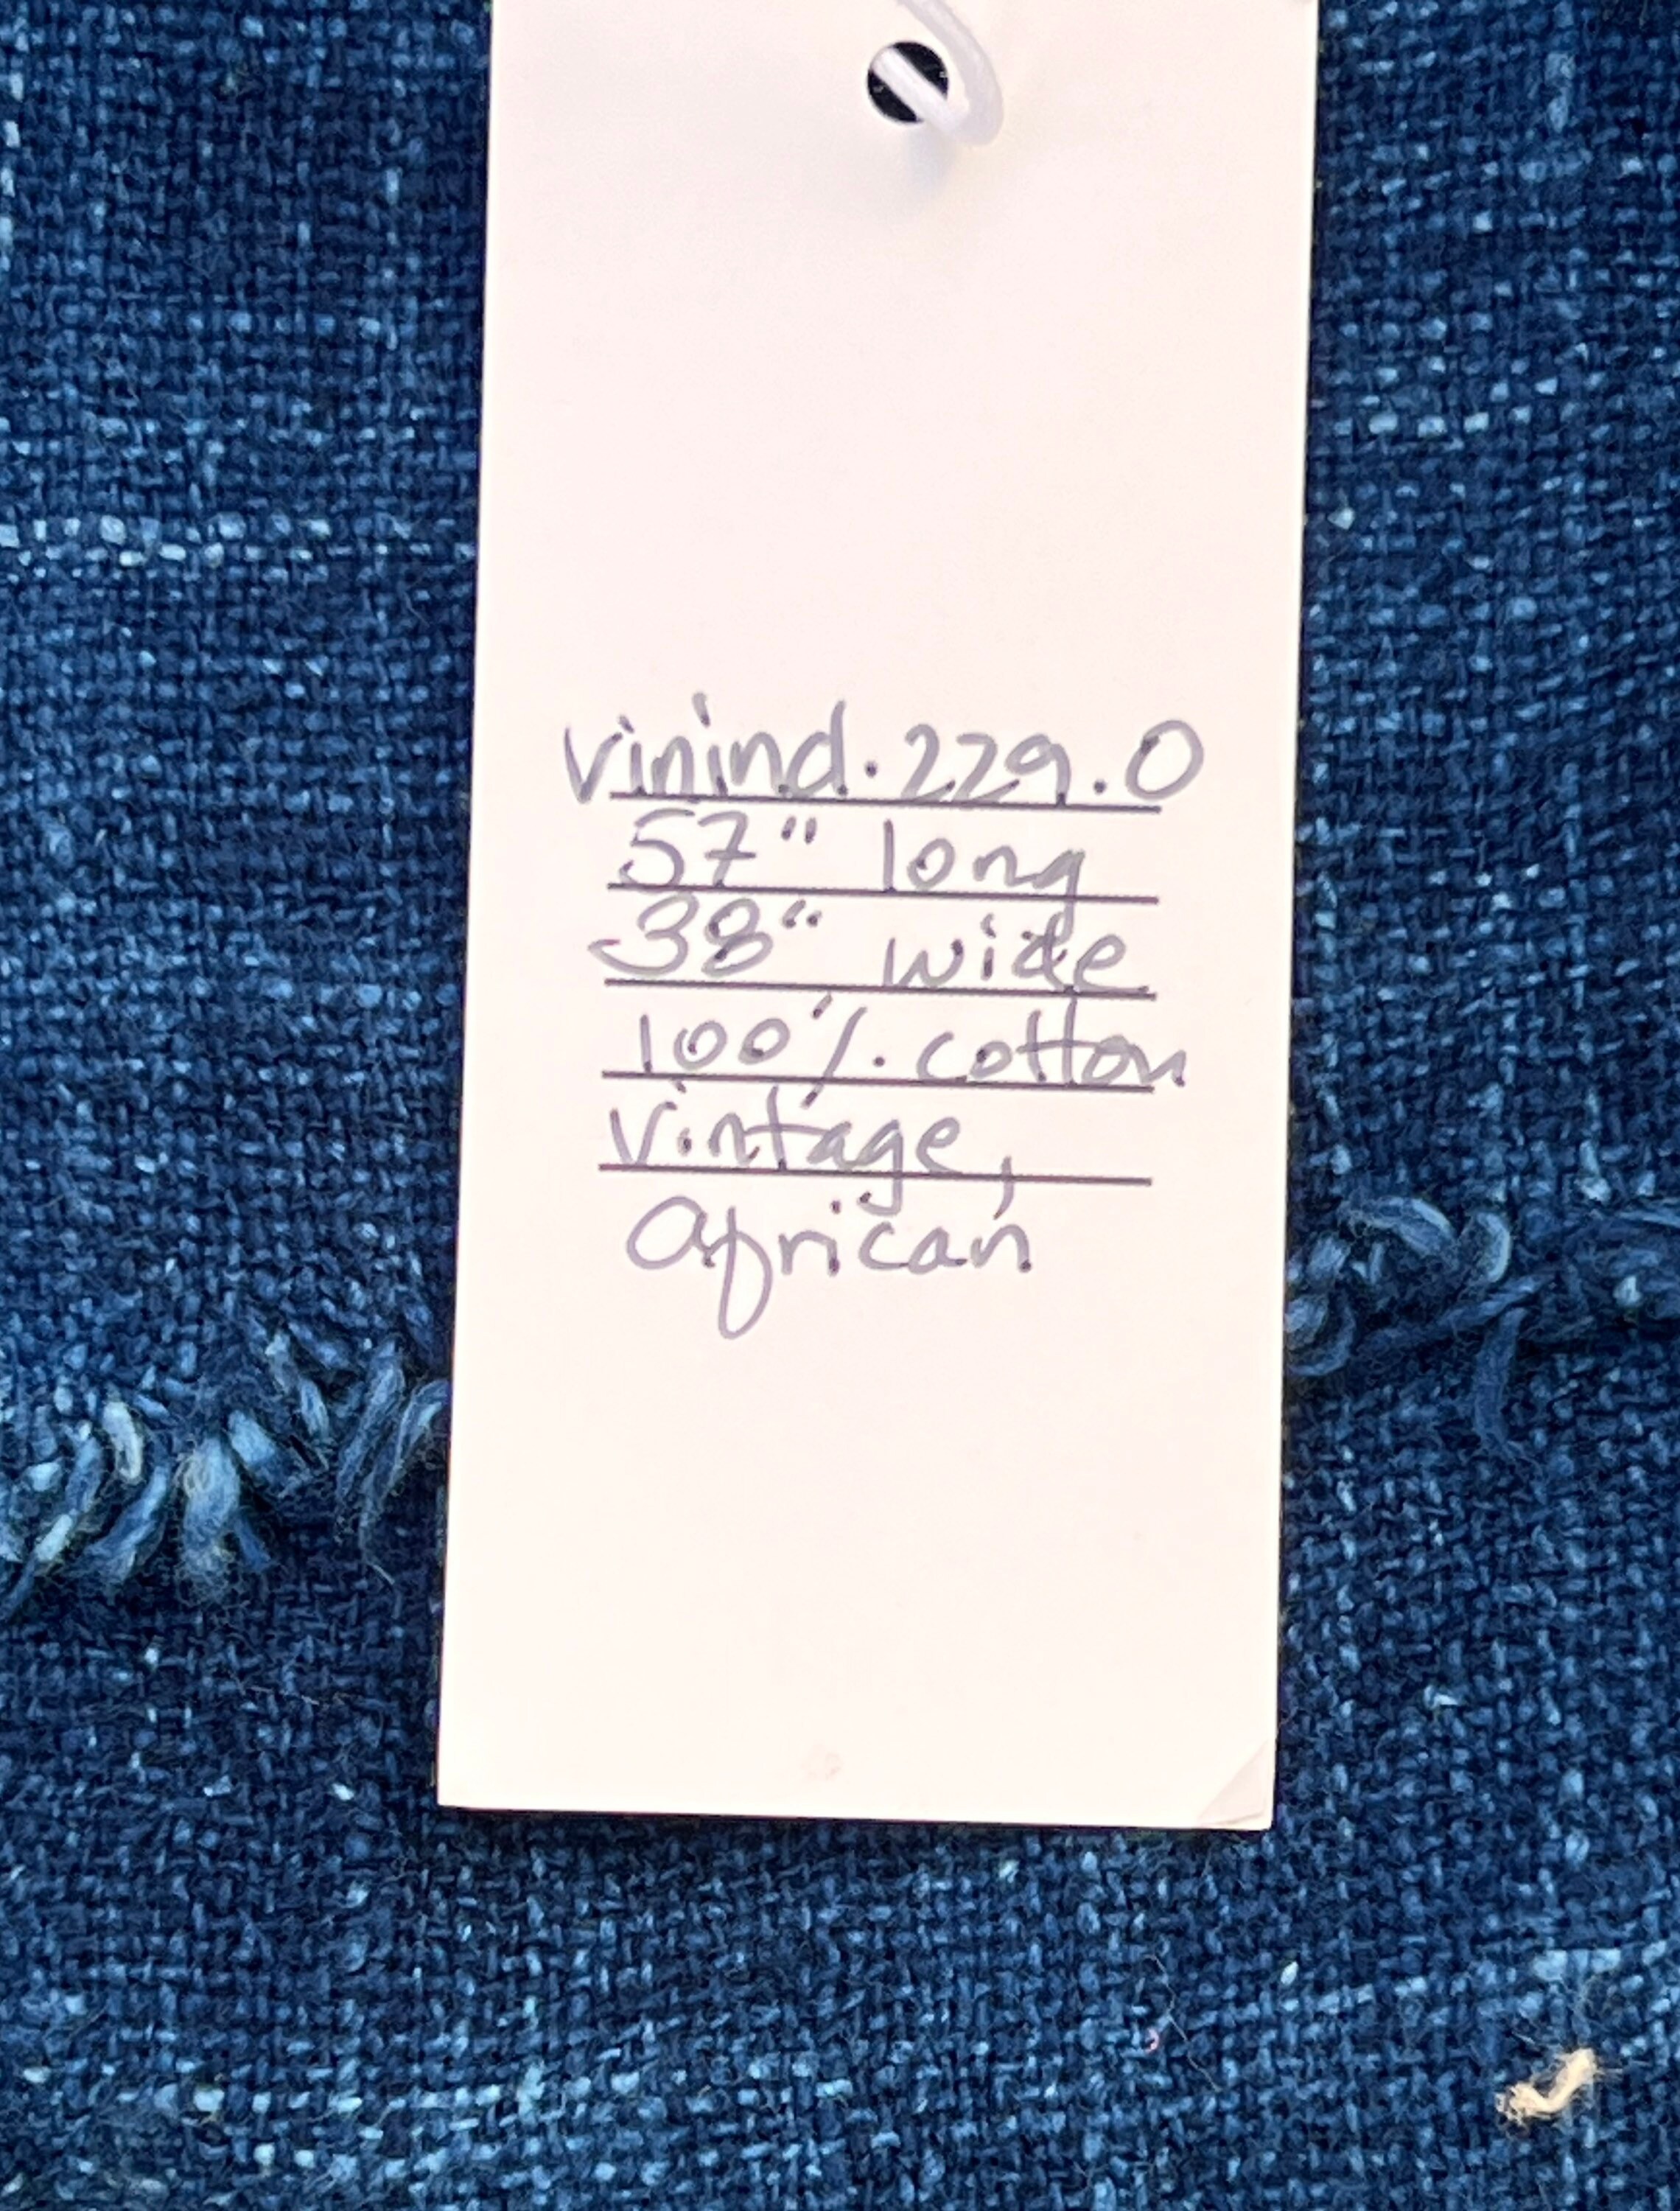 vinind.229.0
57" long
38" wide
100% cotton
vintage,
African